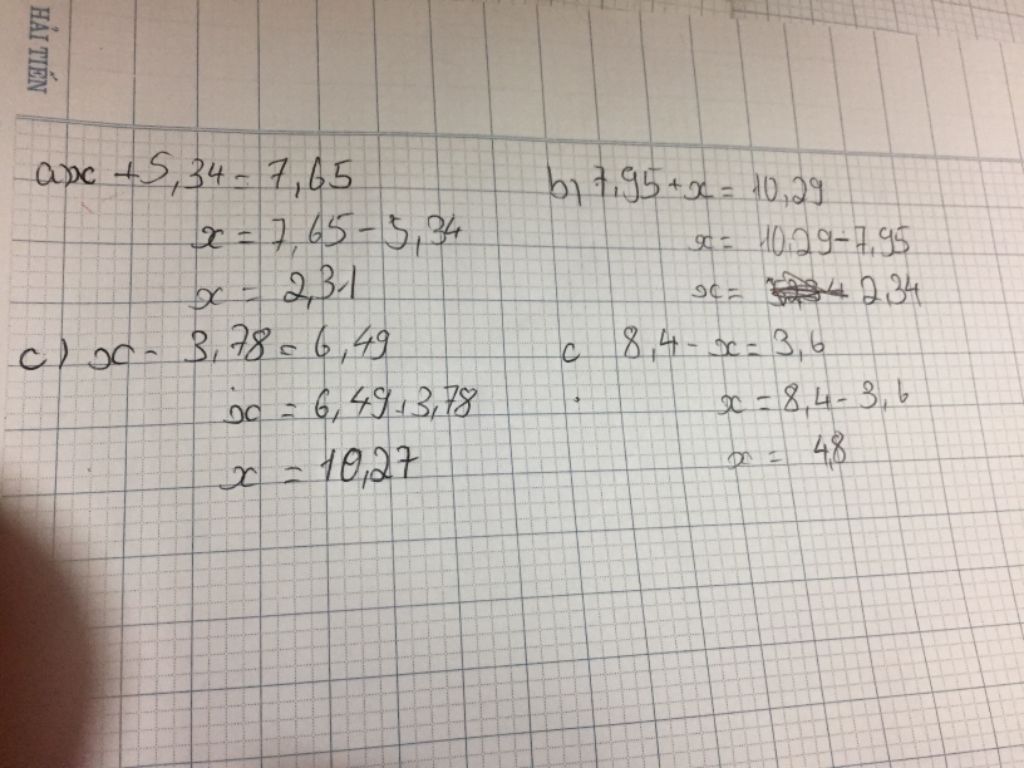 HẢI TIẾN
a) x + 5,34 = 7,65
x = 7,65 - 5,34
x = 2,31
b) 7,95 + x = 10,29
x = 10,29 - 7,95
x = 2,34
c) x - 3,78 = 6,49
x = 6,49 + 3,78
x = 10,27
c 8,4 - x = 3,6
x = 8,4 - 3,6
x = 4,8